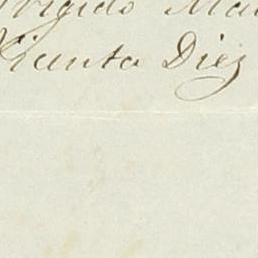 Brigido Ma
Vicenta Diez